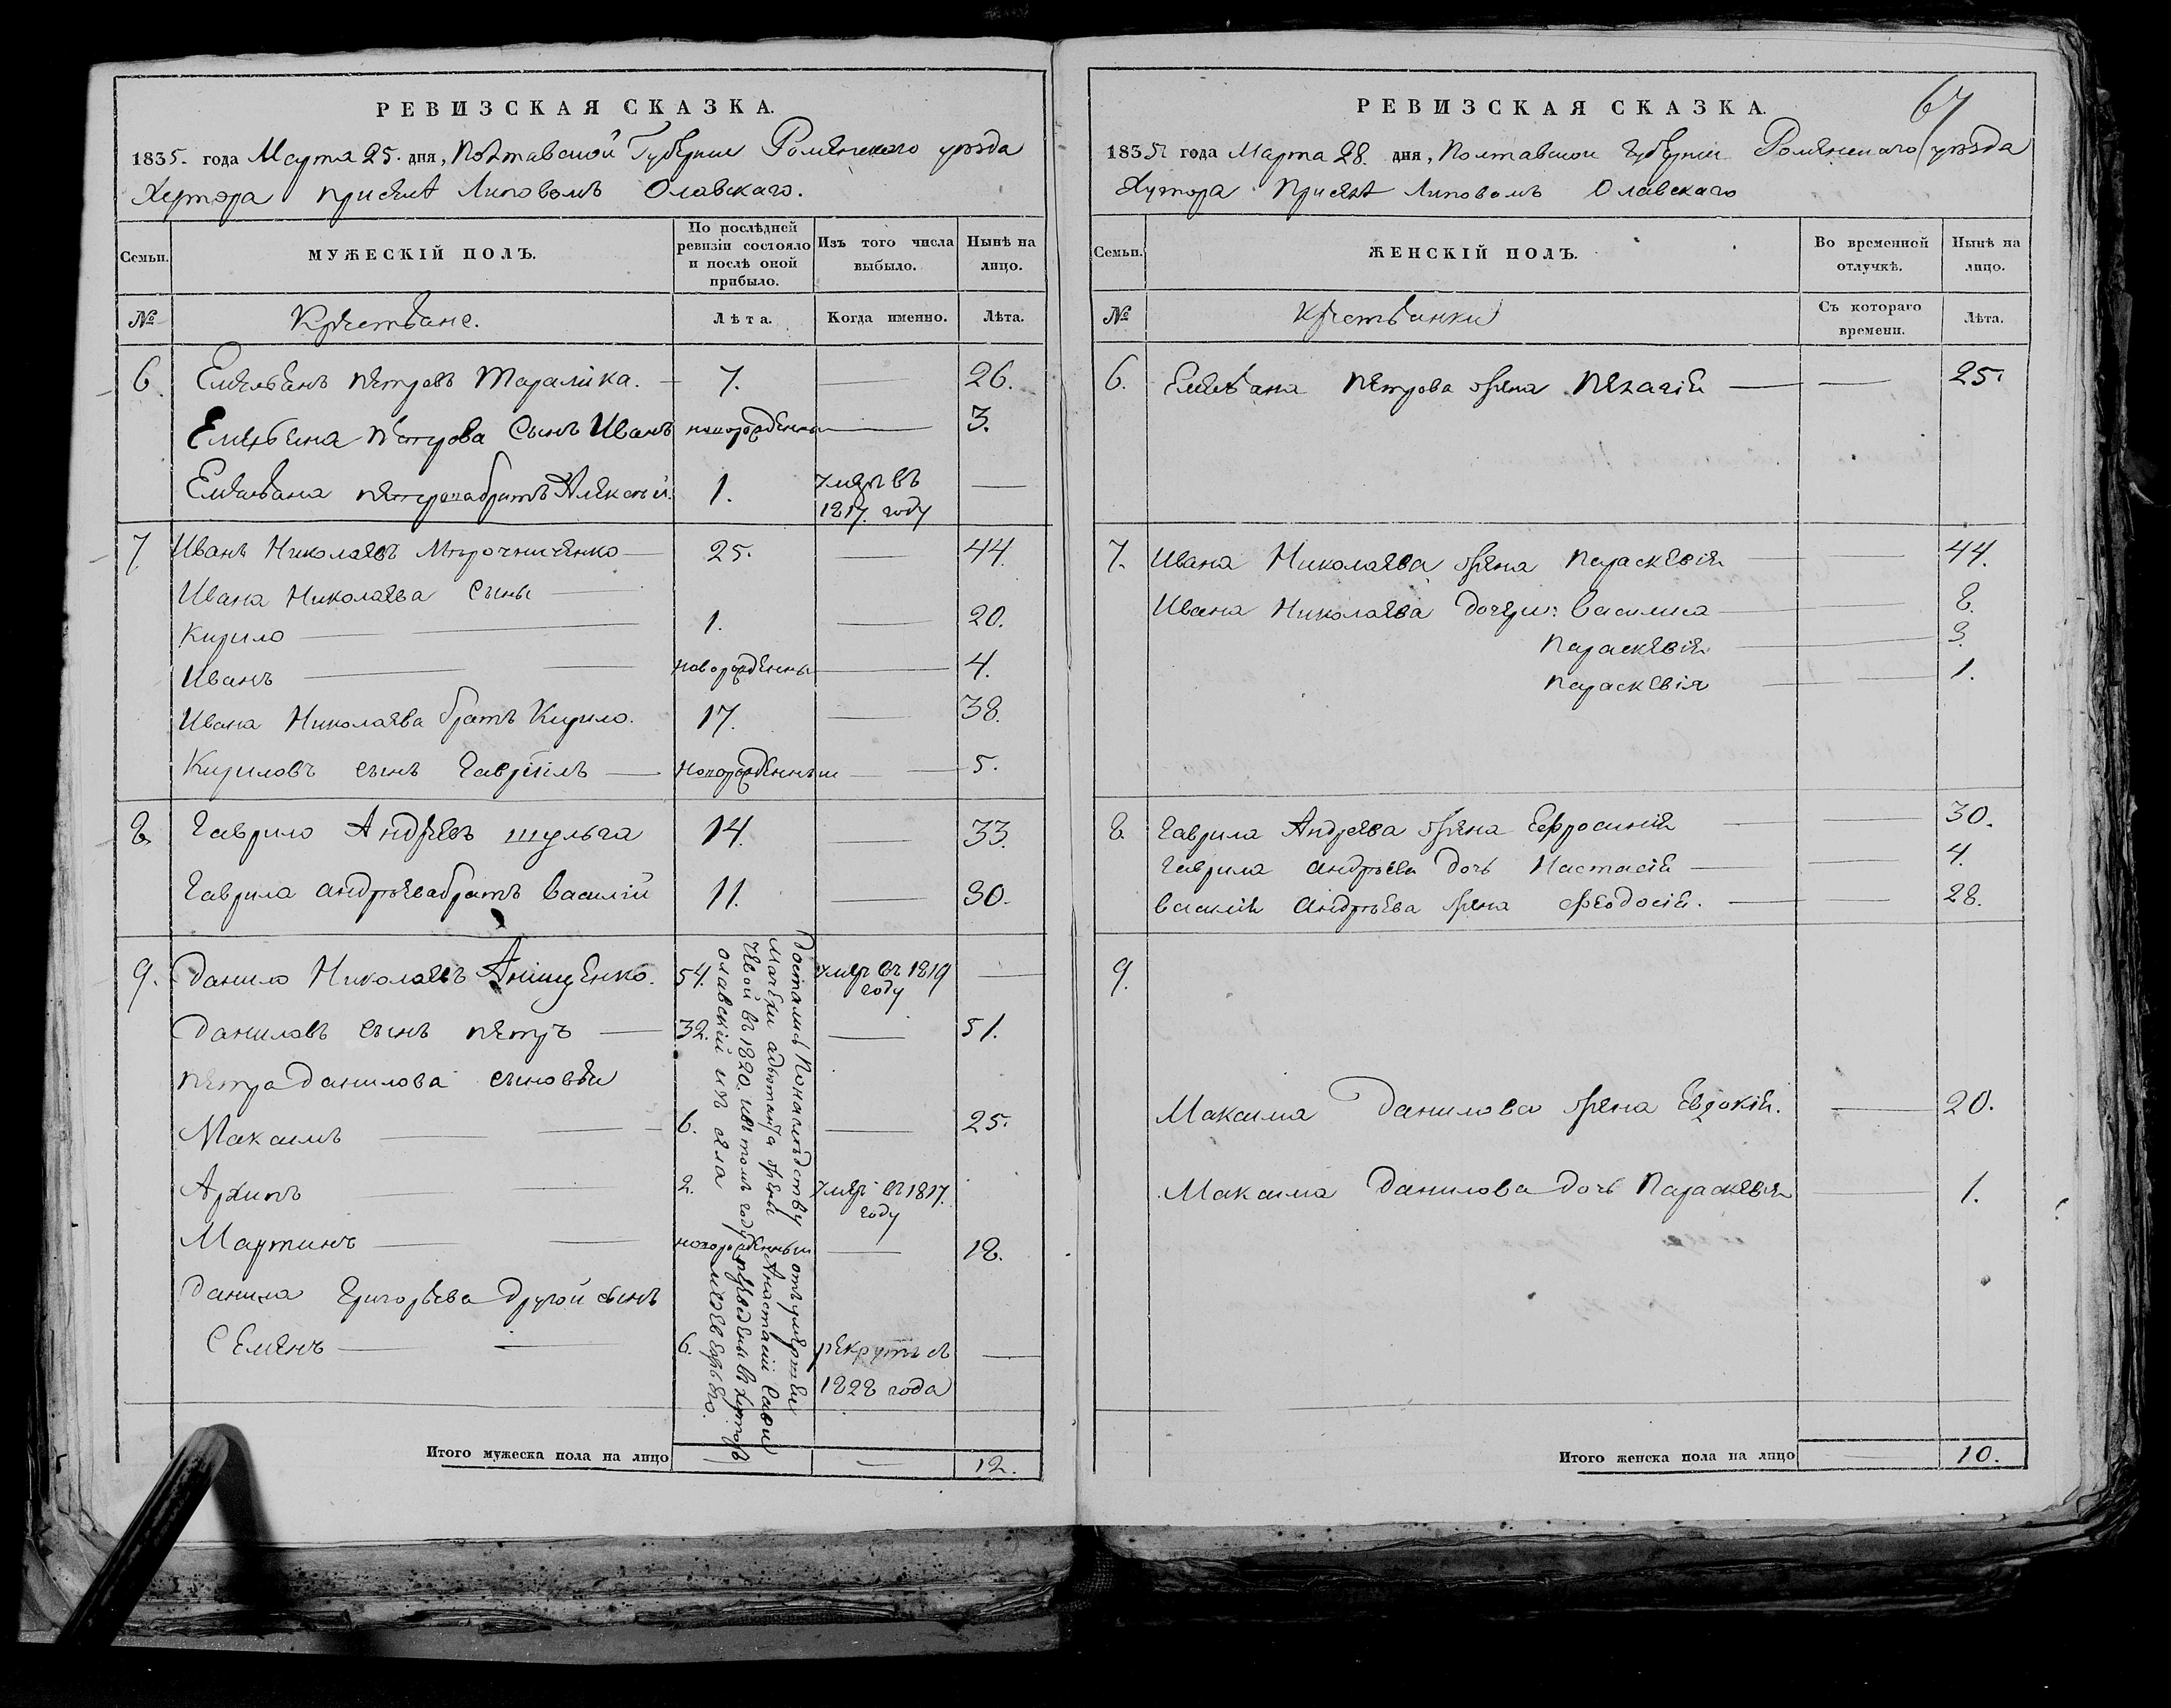 РЕВИЗСКАЯ СКАЗКА.
1835. года Марта 25. дня, Полтавской Губернии Роменского уезда
Хутора при селе Липовомъ Олавскаго.
Семьи.
МУЖЕСКІЙ ПОЛЪ.
По послѣдней ревизіи состояло и послѣ оной прибыло.
Изъ того числа выбыло.
Нынѣ на лицо.
№
Крестьяне.
Лѣта.
Когда именно.
Лѣта.
6 Емельянъ Петровъ 7. 26.
Емельяна Петрова Сынъ Иванъ новорожденный 3.
Емельяна Петрова братъ Алексей. 1. умеръ въ
1817. году
7 Иванъ Николаевъ 25. 44.
Ивана Николаева Сыны
Кирило 1. 20.
Иванъ новорожденный 4.
Ивана Николаева братъ Кирило. 17. 38.
Кириловъ сынъ Гавріилъ новорожденный 5.
8. Гаврило Андреевъ шульга 14. 33.
Гаврила андрѣева братъ василій 11. 30.
9. Данило Николаевъ Анищенко. 54. умеръ въ 1819
году
Даниловъ сынъ петръ 32. 51.
петра Данилова сыновья
Максимъ 6. 25.
Архипъ 2. умеръ въ 1817.
году
Мартинъ новорожденный 18.
Данила Григорьева другой сынъ
Семенъ 6. рекрутъ съ
1828 года
Достались По наследству от умершей
мачехи адьютанта жены Анастасіи
въ 1820. и въ томъ году переведены в хуторъ
олавскій изъ села
Итого мужеска пола на лицо 12.
67
РЕВИЗСКАЯ СКАЗКА.
1835 года Марта 28. дня, Полтавской губерніи Роменскаго уезда
Хутора При селе Липовомъ Олавскаго
Семьи.
ЖЕНСКІЙ ПОЛЪ.
Во временной отлучкѣ.
Нынѣ на лицо.
№
Крестьянки
Съ котораго времени.
Лѣта.
6. Емельяна Петрова жена Пелагія 25.
7. Ивана Николаева жена параскевія 44.
Ивана Николаева дочери: василиса 8.
параскевія 3.
параскевія 1.
8. Гаврила Андреева жена Ефросинія 30.
Гаврила андрѣева дочь Настасія 4.
василія андрѣева жена феодосія. 28.
9.
Максима Данилова жена Евдокія. 20.
Максима Данилова дочь параскевія 1.
Итого женска пола на лицо 10.